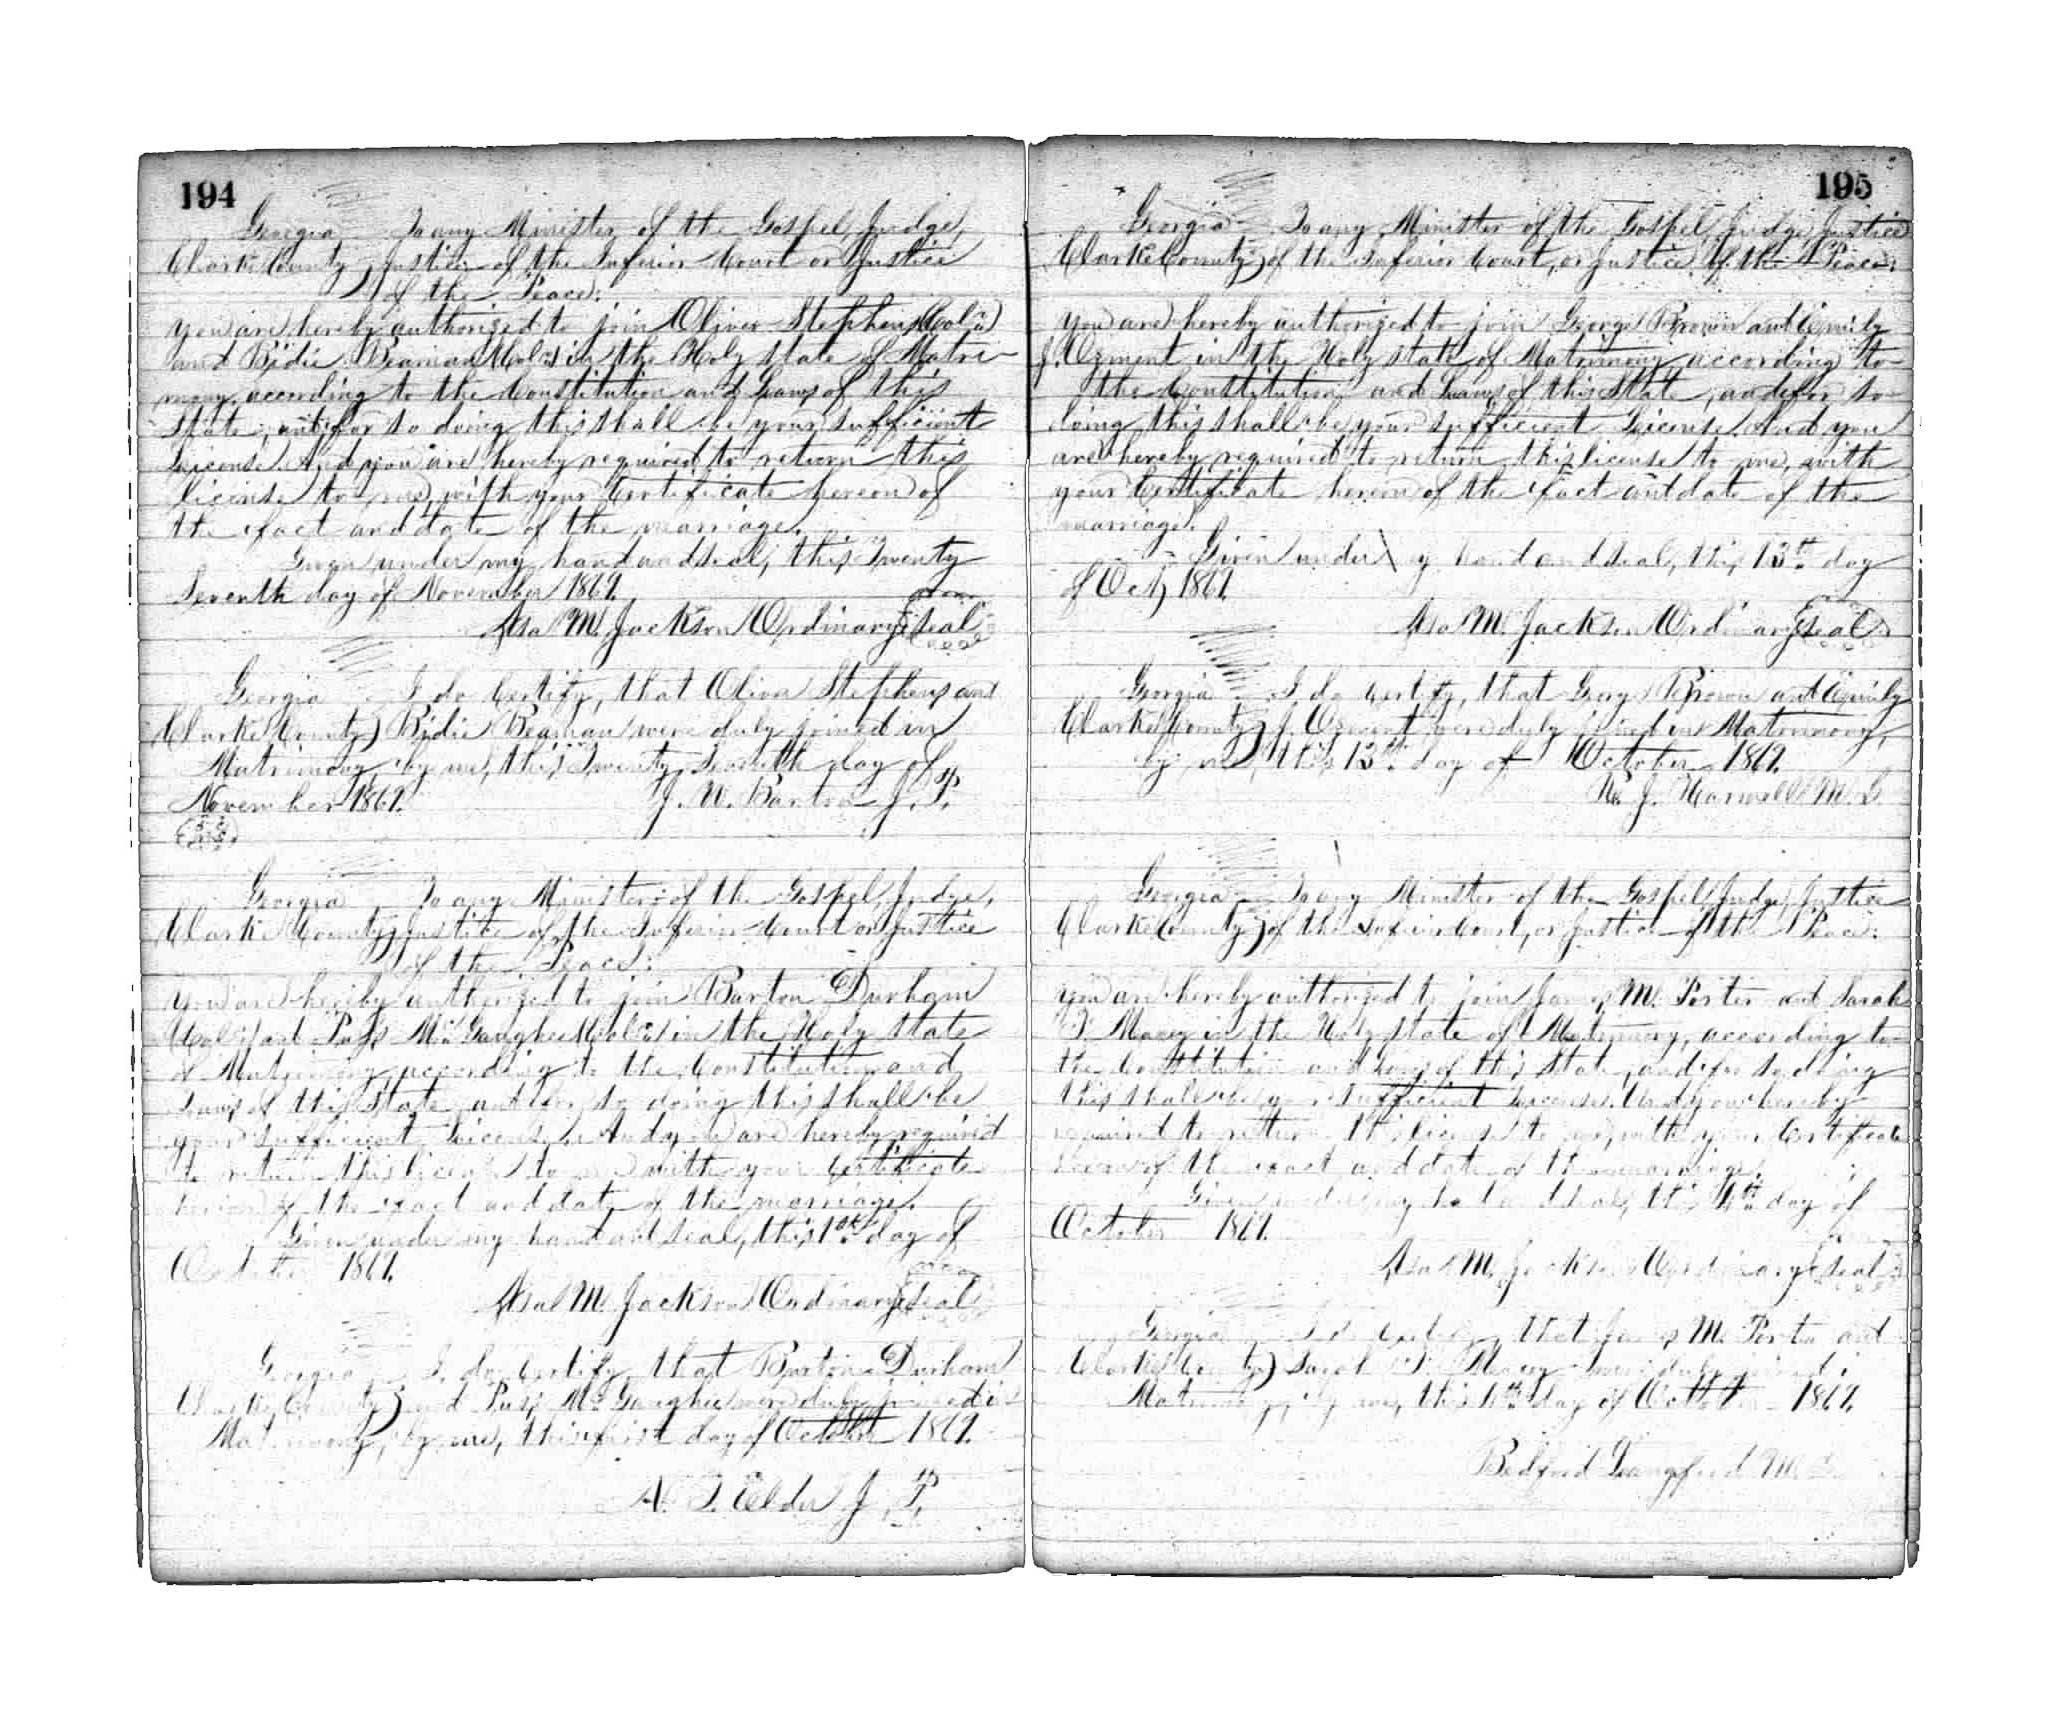 194
Georgia To any Minister of the Gospel, Judge,
Clarke County } Justice of the Inferior Court or Justice
of the Peace:
You are hereby authorized to join Oliver Stephens (Col'd)
and Bidie Beaman (Col'd) in the Holy state of Matri-
mony, according to the Constitution and Laws of this
State, and for so doing this shall be your sufficient
License. And you are hereby required to return this
license to me, with your Certificate hereon of
the fact and date of the marriage.
Given under my hand and seal, this Twenty
Seventh day of November 1869.
Asa M. Jackson Ordinary (seal)
Georgia I do Certify, that Oliver Stephens and
Clarke County } Bidie Beaman were duly joined in
Matrimony by me, this Twenty Seventh day of
November 1869. J. W. Barton J. P.
Georgia To any Minister of the Gospel, Judge,
Clarke County } Justice of the Inferior Court or Justice
of the Peace:
You are hereby authorized to join Barton Durham
(Col'd) and Puss McGaughee (Col'd) in the Holy state
of Matrimony, according to the Constitution and
Laws of this State, and for so doing this shall be
your sufficient License. And you are hereby required
to return this license to me with your Certificate
hereon of the fact and date of the marriage.
Given under my hand and seal, this 1st day of
October 1869.
Asa M. Jackson Ordinary (seal)
Georgia I do Certify, that Barton Durham
Clarke County } and Puss McGaughee were duly joined in
Matrimony, by me, this first day of October 1869.
N. T. Elder J. P.
195
Georgia To any Minister of the Gospel, Judge, Justice
Clarke County } of the Inferior Court, or Justice of the Peace:
You are hereby authorized to join George Brown and Emily
J. Ozment in the Holy state of Matrimony, according to
the Constitution and Laws of this State, and for so
doing this shall be your sufficient License. And you
are hereby required to return this license to me, with
your Certificate hereon of the fact and date of the
marriage.
Given under my hand and seal, this 13th day
of Oct, 1869.
Asa M. Jackson Ordinary (seal)
Georgia I do Certify, that George Brown and Emily
Clarke County } J. Ozment were duly joined in Matrimony,
by me, this 13th day of October 1869.
R. J. Harwell M. G.
Georgia To any Minister of the Gospel, Judge, Justice
Clarke County } of the Inferior Court, or Justice of the Peace:
You are hereby authorized to join James M. Porter and Sarah
F. Maxey in the Holy state of Matrimony, according to
the Constitution and Laws of this State, and for so doing
this shall be your sufficient License. And you hereby
required to return this license to me, with your Certificate
hereon of the fact and date of the marriage.
Given under my hand and seal, this 4th day of
October 1869.
Asa M. Jackson Ordinary (seal)
Georgia I do Certify, that James M. Porter and
Clarke County } Sarah F. Maxey were duly joined in
Matrimony, by me, this day of October 1869.
Bedford Langford M. G.